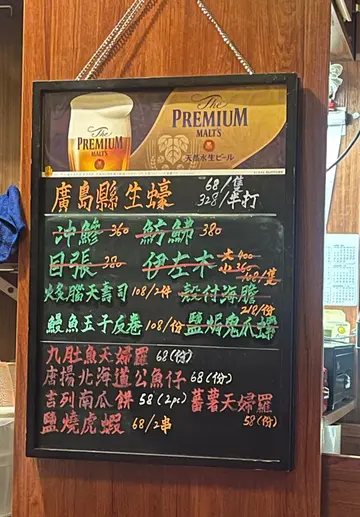 The PREMIUM MALT'S
The PREMIUM MALT'S
天然水生ビール
廣島縣 生蠔 68/隻
328/半打
沖鰺 360 魴鮄 380
目張 380 伊左木 大400
小360
火炙腦天壽司 108/2件 殼付海膽 168/隻
鰻魚玉子反卷 108/份 鹽焗鬼瓜螺 218/份
九肚魚天婦羅 68(份)
唐揚北海道公魚仔 68(份)
吉列南瓜餅 58(2pc) 蕃薯天婦羅
鹽燒虎蝦 68/2串 58(份)